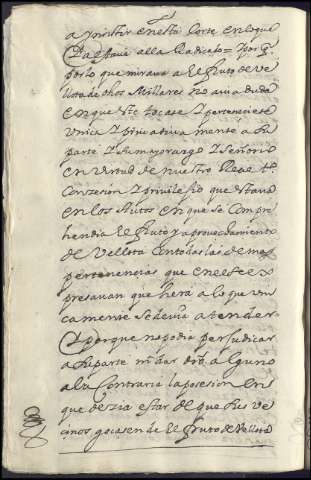 a pinistir en esta Corte en loque
Pa estava alla Radicalo = Ypor q.
por lo que mirava a el fruto de ve
llota de dhos Millares no avia duda
en que este tocase I perteneciese
Unica I pribativa mente a su
parte I su mayorazgo I Señorio
en virtud de nuestro Real tt.o
Conzesion I privilejio que estava
en los Autos en que se Compre
hendia el fruto y aprovechamiento
de Vellota con todas las demas
pertenencias que en el se ex
presavan que hera a lo que uni
camente se devia atender
Y porque no podia perjudicar
a su parte ni dar dro. alguno
a la Contraria la posesion en
que dezia estar de que sus ve
cinos gozasen de el fruto de Vellota